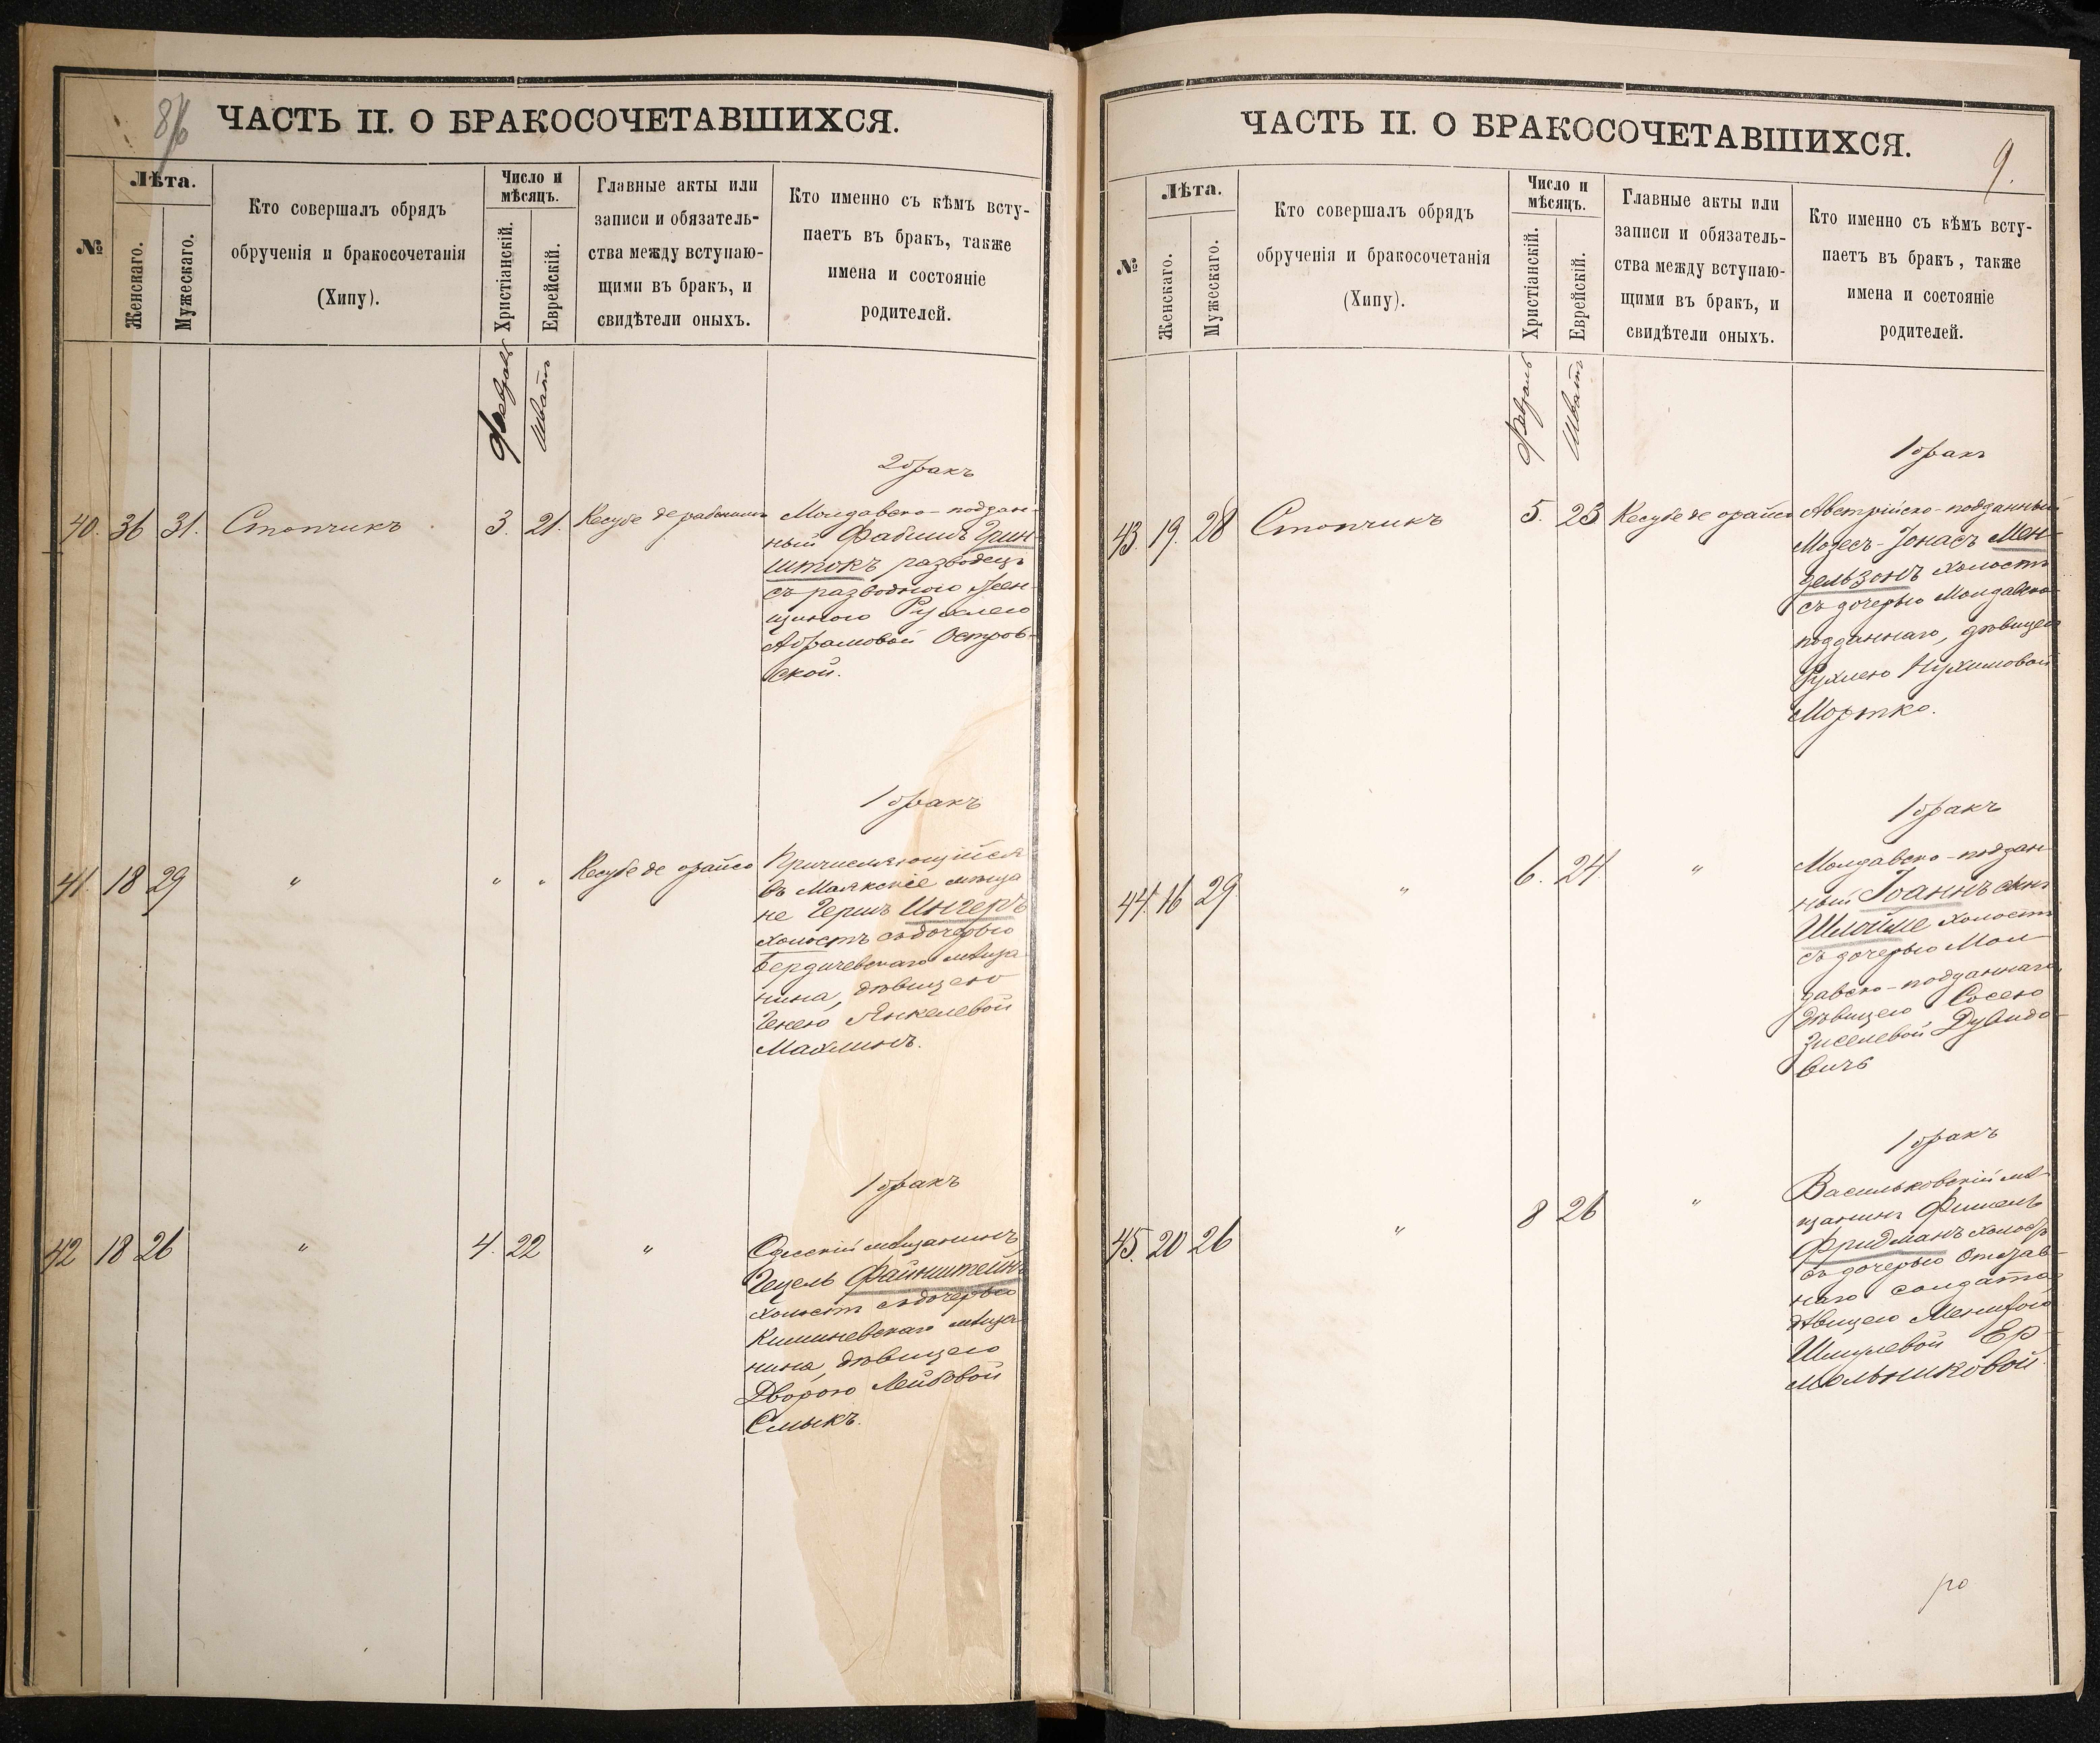 8/б
ЧАСТЬ II. О БРАКОСОЧЕТАВШИХСЯ.
№
Лѣта.
Женскаго.
Мужескаго.
Кто совершалъ обрядъ
обрученія и бракосочетанія
(Хипу).
Число и
мѣсяцъ.
Христіанскій.
Еврейскій.
Главные акты или
записи и обязатель-
ства между вступаю-
щими въ бракъ, и
свидѣтели оныхъ.
Кто именно съ кѣмъ всту-
паетъ въ бракъ, также
имена и состояніе
родителей.
Февраль
Шватъ
2 бракъ
40. 36 31. Стопчикъ 3. 21. Кесубе де рабонимъ
Молдавско-поддан-
ный Фабишъ Грин-
штокъ разводецъ
съ разводною жен-
щиною Рухлею
Абрамовой Остров-
ской.
1 бракъ
41. 18 29 " " " Кесубе де орайсо
Причисляющійся
въ Маякскіе мѣща
не Гершъ Ингеръ
холостъ съ дочерью
Бердичевскаго мѣща
нина, дѣвицею
Генею Янкелевой
Махлинъ.
1 бракъ
42 18 26 " 4. 22 "
Одесскій мѣщанинъ
Гецель Файнштейнъ
холостъ съ дочерью
Кишиневскаго мѣща
нина, дѣвицею
Дворою Лейбовой
Смыкъ.
ЧАСТЬ II. О БРАКОСОЧЕТАВШИХСЯ.
9.
№
Лѣта.
Женскаго.
Мужескаго.
Кто совершалъ обрядъ
обрученія и бракосочетанія
(Хипу).
Число и
мѣсяцъ.
Христіанскій.
Еврейскій.
Главные акты или
записи и обязатель-
ства между вступаю-
щими въ бракъ, и
свидѣтели оныхъ.
Кто именно съ кѣмъ всту-
паетъ въ бракъ, также
имена и состояніе
родителей.
Февраль
Шватъ
1 бракъ
43. 19. 28 Стопчикъ 5. 23 Кесубе де орайсо
Австрійско-подданный
Мозесъ-Іонасъ Мен-
дельзонъ холостъ
съ дочерью Молдавско-
подданнаго, дѣвицею
Рухлею Нухимовой
Мортко.
1 бракъ
44. 16 29. " 6. 24. "
Молдавско-поддан-
ный Іоаннъ сынъ
Шлоймe холостъ
съ дочерью Мол-
давско-подданнаго
дѣвицею Сосею
Зиселевой Дувидо-
вичъ
1 бракъ
45. 20 26 " 8 26 "
Васильковскій мѣ-
щанинъ Фишель
Фридманъ холостъ
съ дочерью Отстав-
наго солдата,
дѣвицею
Шмулевой Ер-
мольниковой.